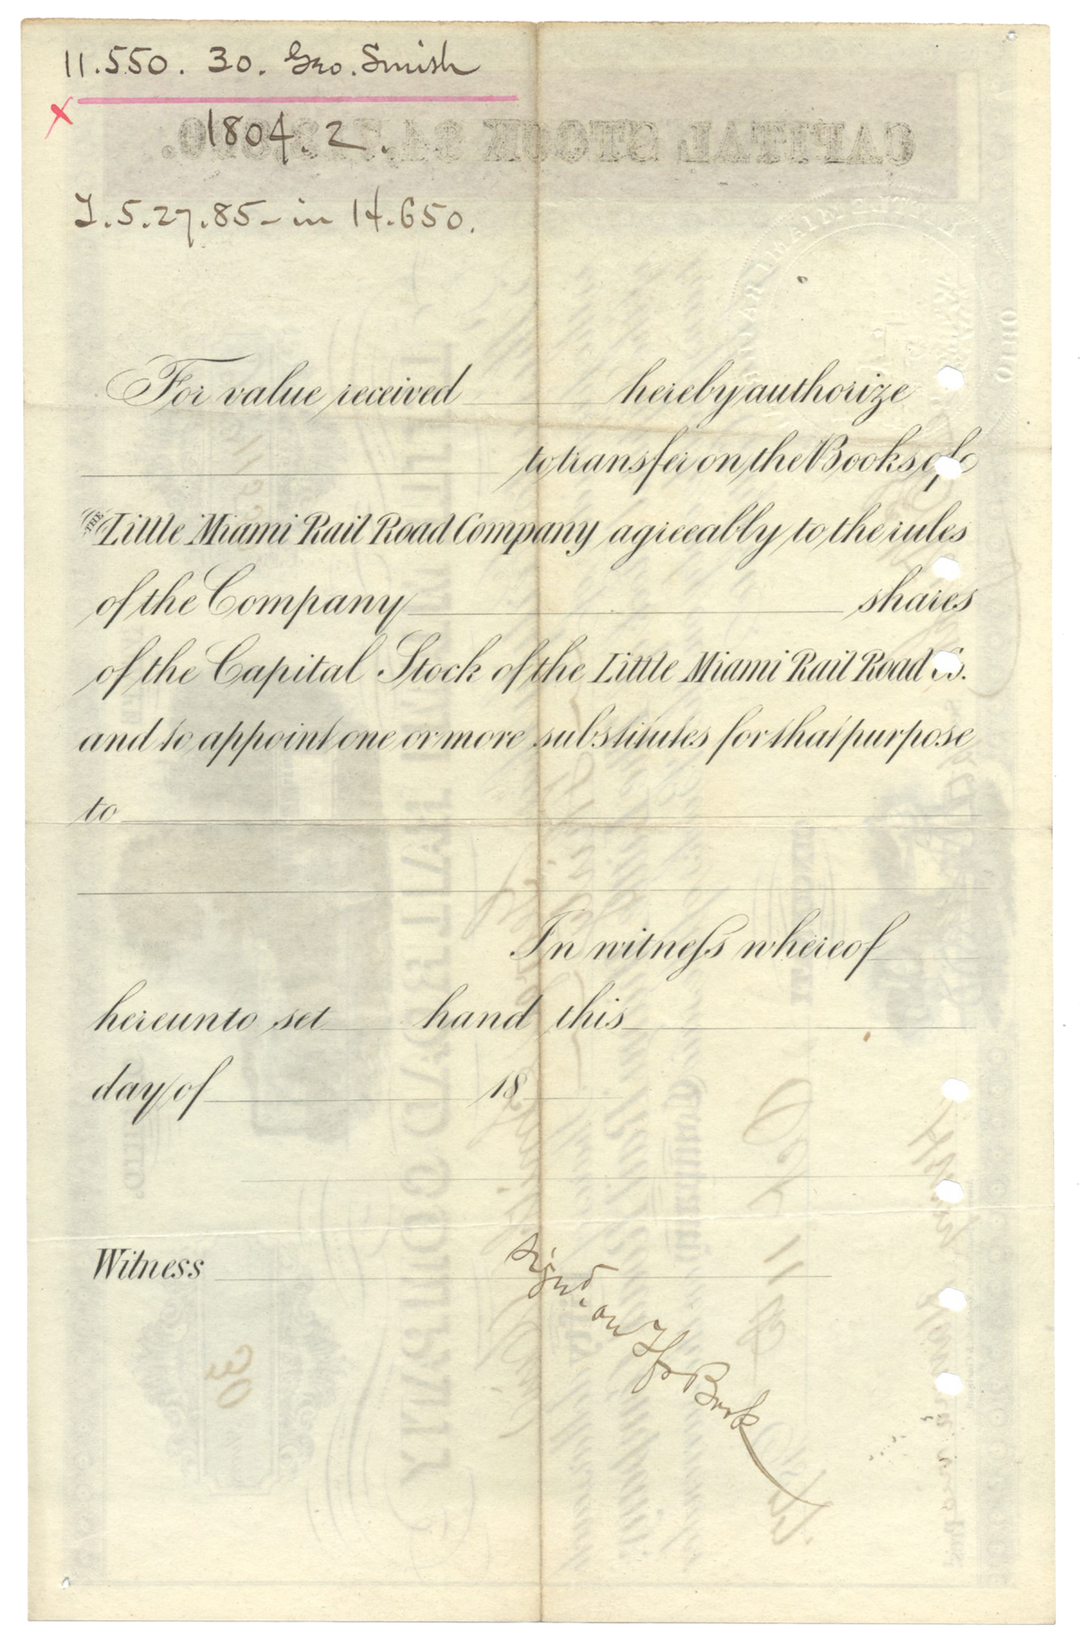 11.550. 30. Geo. Smish
1804.2.
T.5.27.85 - in 14.650.
For value received hereby authorize
to transfer on the Books of
THE Little Miami Rail Road Company agreeably to the rules
of the Company shares
of the Capital Stock of the Little Miami Rail Road Co.
and to appoint one or more substitutes for that purpose
to
In witness whereof
hereunto set hand this
day of 18
Witness
Signd. on Tfr Book
30